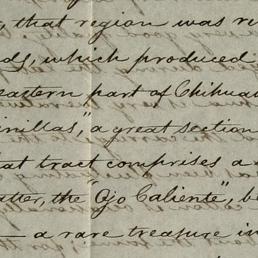 , that region was
ds, which produced
eastern part of Chihua
nillas," a great section
at tract comprises a
atter, the "Ojo Caliente", be
— a rare treasure in